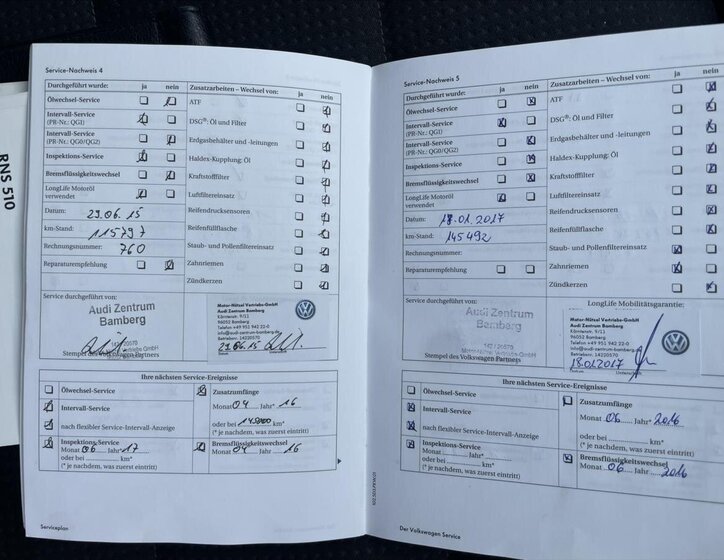 RNS 510
Service-Nachweis 4
Durchgeführt wurde: ja nein
Ölwechsel-Service
Intervall-Service
(PR-Nr.: QG1)
Intervall-Service
(PR-Nr.: QG0/QG2)
Inspektions-Service
Bremsflüssigkeitswechsel
LongLife Motoröl
verwendet
Datum: 29.06.15
km-Stand: 115797
Rechnungsnummer: 760
Reparaturempfehlung
Zusatzarbeiten – Wechsel von: ja nein
ATF
DSG®: Öl und Filter
Erdgasbehälter und -leitungen
Haldex-Kupplung: Öl
Kraftstofffilter
Luftfiltereinsatz
Reifendrucksensoren
Reifenfüllflasche
Staub- und Pollenfiltereinsatz
Zahnriemen
Zündkerzen
Service durchgeführt von:
Audi Zentrum
Bamberg
Stempel des Volkswagen Partners
Motor-Nützel Vertriebs-GmbH
Audi Zentrum Bamberg
Kärntenstr. 9/11
96052 Bamberg
Telefon +49 951 942 22-0
info@audi-zentrum-bamberg.de
Betriebsnr. 14220570
29.06.15
Ihre nächsten Service-Ereignisse
Ölwechsel-Service
Intervall-Service
nach flexibler Service-Intervall-Anzeige
Inspektions-Service
Monat 06 Jahr* 17
oder bei km*
(* je nachdem, was zuerst eintritt)
Zusatzumfänge
Monat 04 Jahr* 16
oder bei km*
(* je nachdem, was zuerst eintritt)
Bremsflüssigkeitswechsel
Monat 04 Jahr 16
Serviceplan
Service-Nachweis 5
Durchgeführt wurde: ja nein
Ölwechsel-Service
Intervall-Service
(PR-Nr.: QG1)
Intervall-Service
(PR-Nr.: QG0/QG2)
Inspektions-Service
Bremsflüssigkeitswechsel
LongLife Motoröl
verwendet
Datum: 18.01.2017
km-Stand: 145492
Rechnungsnummer:
Reparaturempfehlung
Zusatzarbeiten – Wechsel von: ja nein
ATF
DSG®: Öl und Filter
Erdgasbehälter und -leitungen
Haldex-Kupplung: Öl
Kraftstofffilter
Luftfiltereinsatz
Reifendrucksensoren
Reifenfüllflasche
Staub- und Pollenfiltereinsatz
Zahnriemen
Zündkerzen
Service durchgeführt von:
Audi Zentrum
Bamberg
Stempel des Volkswagen Partners
LongLife Mobilitätsgarantie:
Motor-Nützel Vertriebs-GmbH
Audi Zentrum Bamberg
Kärntenstr. 9/11
96052 Bamberg
Telefon +49 951 942 22-0
info@audi-zentrum-bamberg.de
Betriebsnr. 14220570
18.01.2017
Ihre nächsten Service-Ereignisse
Ölwechsel-Service
Intervall-Service
nach flexibler Service-Intervall-Anzeige
Inspektions-Service
Monat Jahr*
oder bei km*
(* je nachdem, was zuerst eintritt)
Zusatzumfänge
Monat 06 Jahr* 2016
oder bei km*
(* je nachdem, was zuerst eintritt)
Bremsflüssigkeitswechsel
Monat 06 Jahr 2016
Der Volkswagen Service